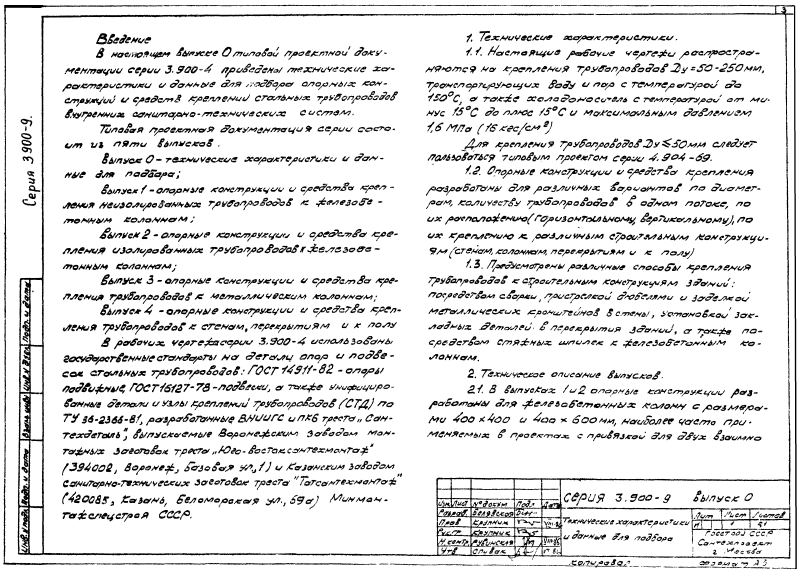 3
Введение
В настоящем выпуске 0 типовой проектной доку-
ментации серии 3.900-4 приведены технические ха-
рактеристики и данные для подбора опорных кон-
струкций и средств креплений стальных трубопроводов
внутренних санитарно-технических систем.
Типовая проектная документация серии состо-
ит из пяти выпусков.
Выпуск 0 - технические характеристики и дан-
ные для подбора;
Выпуск 1 - опорные конструкции и средства креп-
ления неизолированных трубопроводов к железобе-
тонным колоннам;
Выпуск 2 - опорные конструкции и средства кре-
пления изолированных трубопроводов к железобе-
тонным колоннам;
Выпуск 3 - опорные конструкции и средства кре-
пления трубопроводов к металлическим колоннам;
Выпуск 4 - опорные конструкции и средства креп-
ления трубопроводов к стенам, перекрытиям и к полу
В рабочих чертежах серии 3.900-4 использованы
государственные стандарты на детали опор и подве-
сок стальных трубопроводов: ГОСТ 14911-82 - опоры
подвижные, ГОСТ 16127-78 - подвески, а также унифициро-
ванные детали и узлы креплений трубопроводов (СТД) по
ТУ 36-2366-81, разработанные ВНИИГС и ПКБ треста „Сан-
техдеталь", выпускаемые Воронежским заводом мон-
тажных заготовок треста „Юго-востоксантехмонтаж"
(394002, Воронеж, Базовая ул., 1) и Казанским заводом
санитарно-технических заготовок треста "Татсантехмонтаж"
(420085, Казань, Беломорская ул., 69а) Минмон-
тажспецстроя СССР.
1. Технические характеристики.
1.1. Настоящие рабочие чертежи распростра-
няются на крепления трубопроводов Ду=50-250мм,
транспортирующих воду и пар с температурой до
150°С, а также холодоноситель с температурой от ми-
нус 15°С до плюс 15°С и максимальным давлением
1,6 МПа (16 кгс/см²)
Для крепления трубопроводов Ду≤50мм следует
пользоваться типовым проектом серии 4.904-69.
1.2. Опорные конструкции и средства крепления
разработаны для различных вариантов по диамет-
рам, количеству трубопроводов в одном потоке, по
их расположению (горизонтальному, вертикальному), по
их креплению к различным строительным конструкци-
ям (стенам, колоннам, перекрытиям и к полу)
1.3. Предусмотрены различные способы крепления
трубопроводов к строительным конструкциям зданий:
посредством сварки, пристрелкой дюбелями и заделкой
металлических кронштейнов в стены, установкой зак-
ладных деталей в перекрытия зданий, а также по-
средством стяжных шпилек к железобетонным ко-
лоннам.
2. Техническое описание выпусков.
2.1. В выпусках 1 и 2 опорные конструкции раз-
работаны для железобетонных колонн с размера-
ми 400×400 и 400×600мм, наиболее часто при-
меняемых в проектах с привязкой для двух взаимно
Серия 3.900-9.
Инв.№подл. Подп. и дата Взам.инв.№ Инв.№дубл. Подп. и дата
Изм. Лист №докум Подп Дата
Разраб. Белявская
Пров Крупник
Рук.гр. Крупник
Н.контр Рубинская
Утв. Спивак
серия 3.900-9 выпуск 0
Технические характеристики
и данные для подбора
Лит Лист Листов
1
Госстрой СССР
Сантехпроект
г. Москва
копировал формат А3